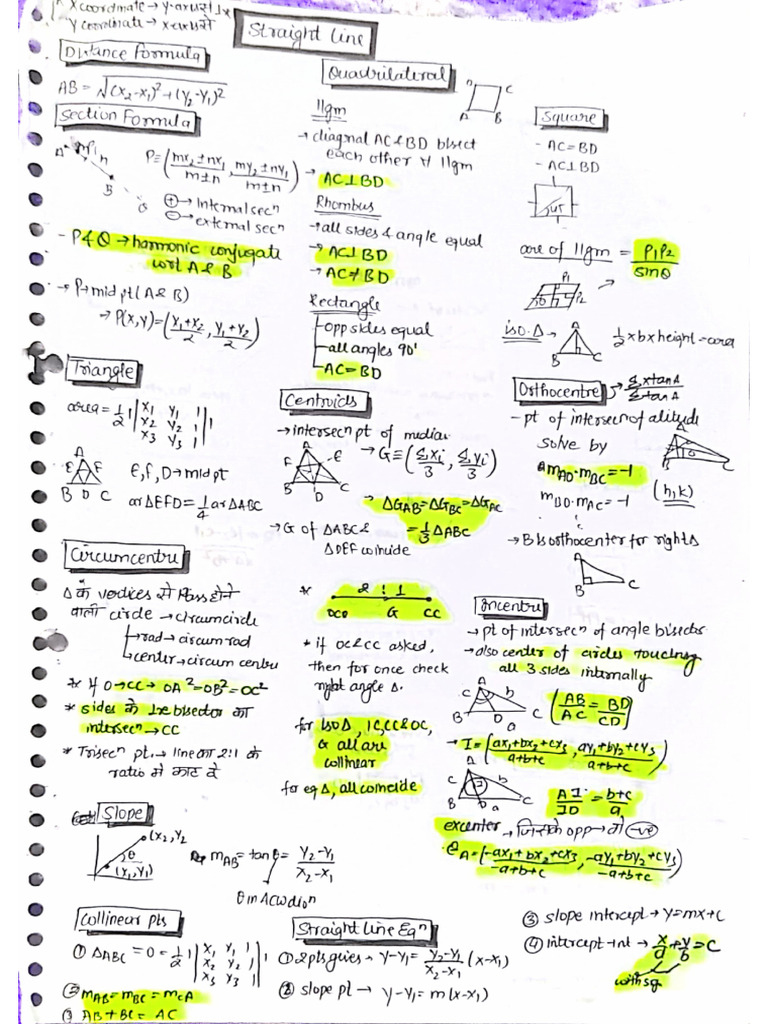 x coordinate → y-axis से ⊥x
y coordinate → x-axis से
Straight Line
Distance Formula
AB = √(x₂-x₁)²+(y₂-y₁)²
Section Formula
A m P n B Q
P≡(mx₂±nx₁/m±n, my₂±ny₁/m±n)
⊕→ Internal secⁿ
⊖→ external secⁿ
- P & Q → harmonic conjugate
wrt A & B
→ P→ mid pt (A & B)
→ P(x,y) = (x₁+x₂/2, y₁+y₂/2)
Quadrilateral
D C
A B
||gm
→ diagonal AC & BD bisect
each other ∀ ||gm
→ AC⊥BD
Rhombus
→ all sides & angle equal
→ AC⊥BD
→ AC≠BD
Rectangle
opp sides equal
all angles 90°
AC = BD
Square
- AC = BD
- AC⊥BD
area of ||gm = P₁P₂/sinθ
P₁
P₂
iso. Δ → A
B C
1/2 × b × height = area
Triangle
area = 1/2 | x₁ y₁ 1 |
x₂ y₂ 1
x₃ y₃ 1
A
E F
B D C
E, F, D → mid pt
arΔEFD = 1/4 arΔABC
Centroids
→ intersecⁿ pt of median
A
F E
B D C
→ G≡(Σxi/3, Σyi/3)
→ ΔG_AB = ΔG_BC = ΔG_AC
= 1/3 ΔABC
→ G of ΔABC &
ΔDEF coincide
Orthocentre → Σxtan A/Σtan A
- pt of intersecⁿ of altitude
solve by
m_AD·m_BC = -1
m_BD·m_AC = -1
(h,k)
→ B is orthocenter for right Δ
A
B C
Circumcentre
Δ के vertices से pass होने
वाली circle → circumcircle
rad → circumrad
center → circum centre
* If O→CC→ OA² = OB² = OC²
* sides के ⊥r bisector का
intersecⁿ → CC
* Trisecⁿ pt. → line का 2:1 के
ratio में काट दे
* 2 : 1
OCO G CC
* if OC & CC asked,
then for once check
right angle Δ.
for Iso Δ, IC, CC & OC,
G all are
collinear
for eq Δ, all coincide
Incentre
→ pt of intersecⁿ of angle bisector
→ also center of circles touching
all 3 sides internally
A
c b
B D a C
(AB/AC = BD/CD)
→ I = (ax₁+bx₂+cx₃/a+b+c, ay₁+by₂+cy₃/a+b+c)
A
c b
I
B D a C
AI/ID = b+c/a
excenter → जिसके opp → में -ve
e_A = (-ax₁+bx₂+cx₃/-a+b+c, -ay₁+by₂+cy₃/-a+b+c)
Slope
(x₂, y₂)
θ
(x₁, y₁)
m_AB = tanθ = y₂-y₁/x₂-x₁
θ in ACW dirⁿ
Collinear pts
① ΔABC = 0 = 1/2 | x₁ y₁ 1 |
x₂ y₂ 1
x₃ y₃ 1
② m_AB = m_BC = m_CA
③ AB + BC = AC
Straight Line Eqⁿ
① 2 pts given → y-y₁ = y₂-y₁/x₂-x₁ (x-x₁)
② slope pt → y-y₁ = m(x-x₁)
③ slope intercept → y = mx+c
④ intercept int → x/a + y/b = C
with sg